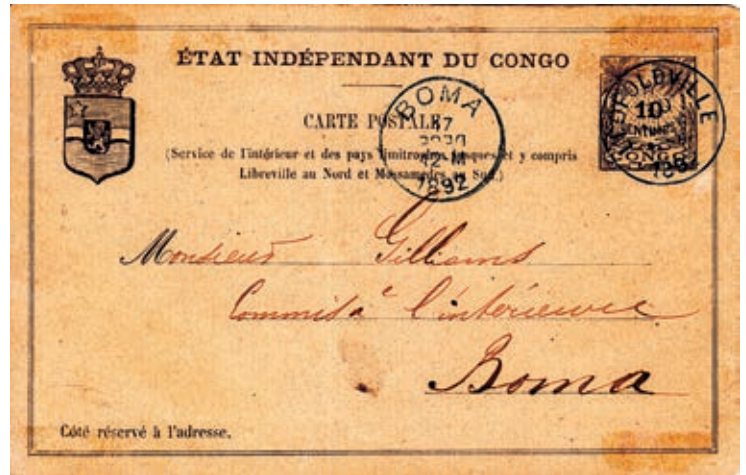 ÉTAT INDÉPENDANT DU CONGO
CARTE POSTALE
(Service de l'intérieur et des pays limitrophes jusques et y compris
Libreville au Nord et Mossamedes au Sud.)
BOMA
17
12-M
1892
LEOPOLDVILLE
10
CENTIMES
CONGO
Monsieur Gilliams
Commis à l'intérieur
Boma
Côté réservé à l'adresse.